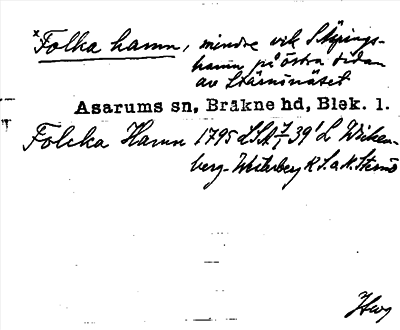 x Folka hamn, mindre vik i Köpings-
hamn på östra sidan
av Stärnönäset
Asarums sn, Bräkne hd, Blek. l.
Folcka Hamn 1795 LSA 39' L Wicken-
berg-Westerberg K S. a N. Sternö
Hwg